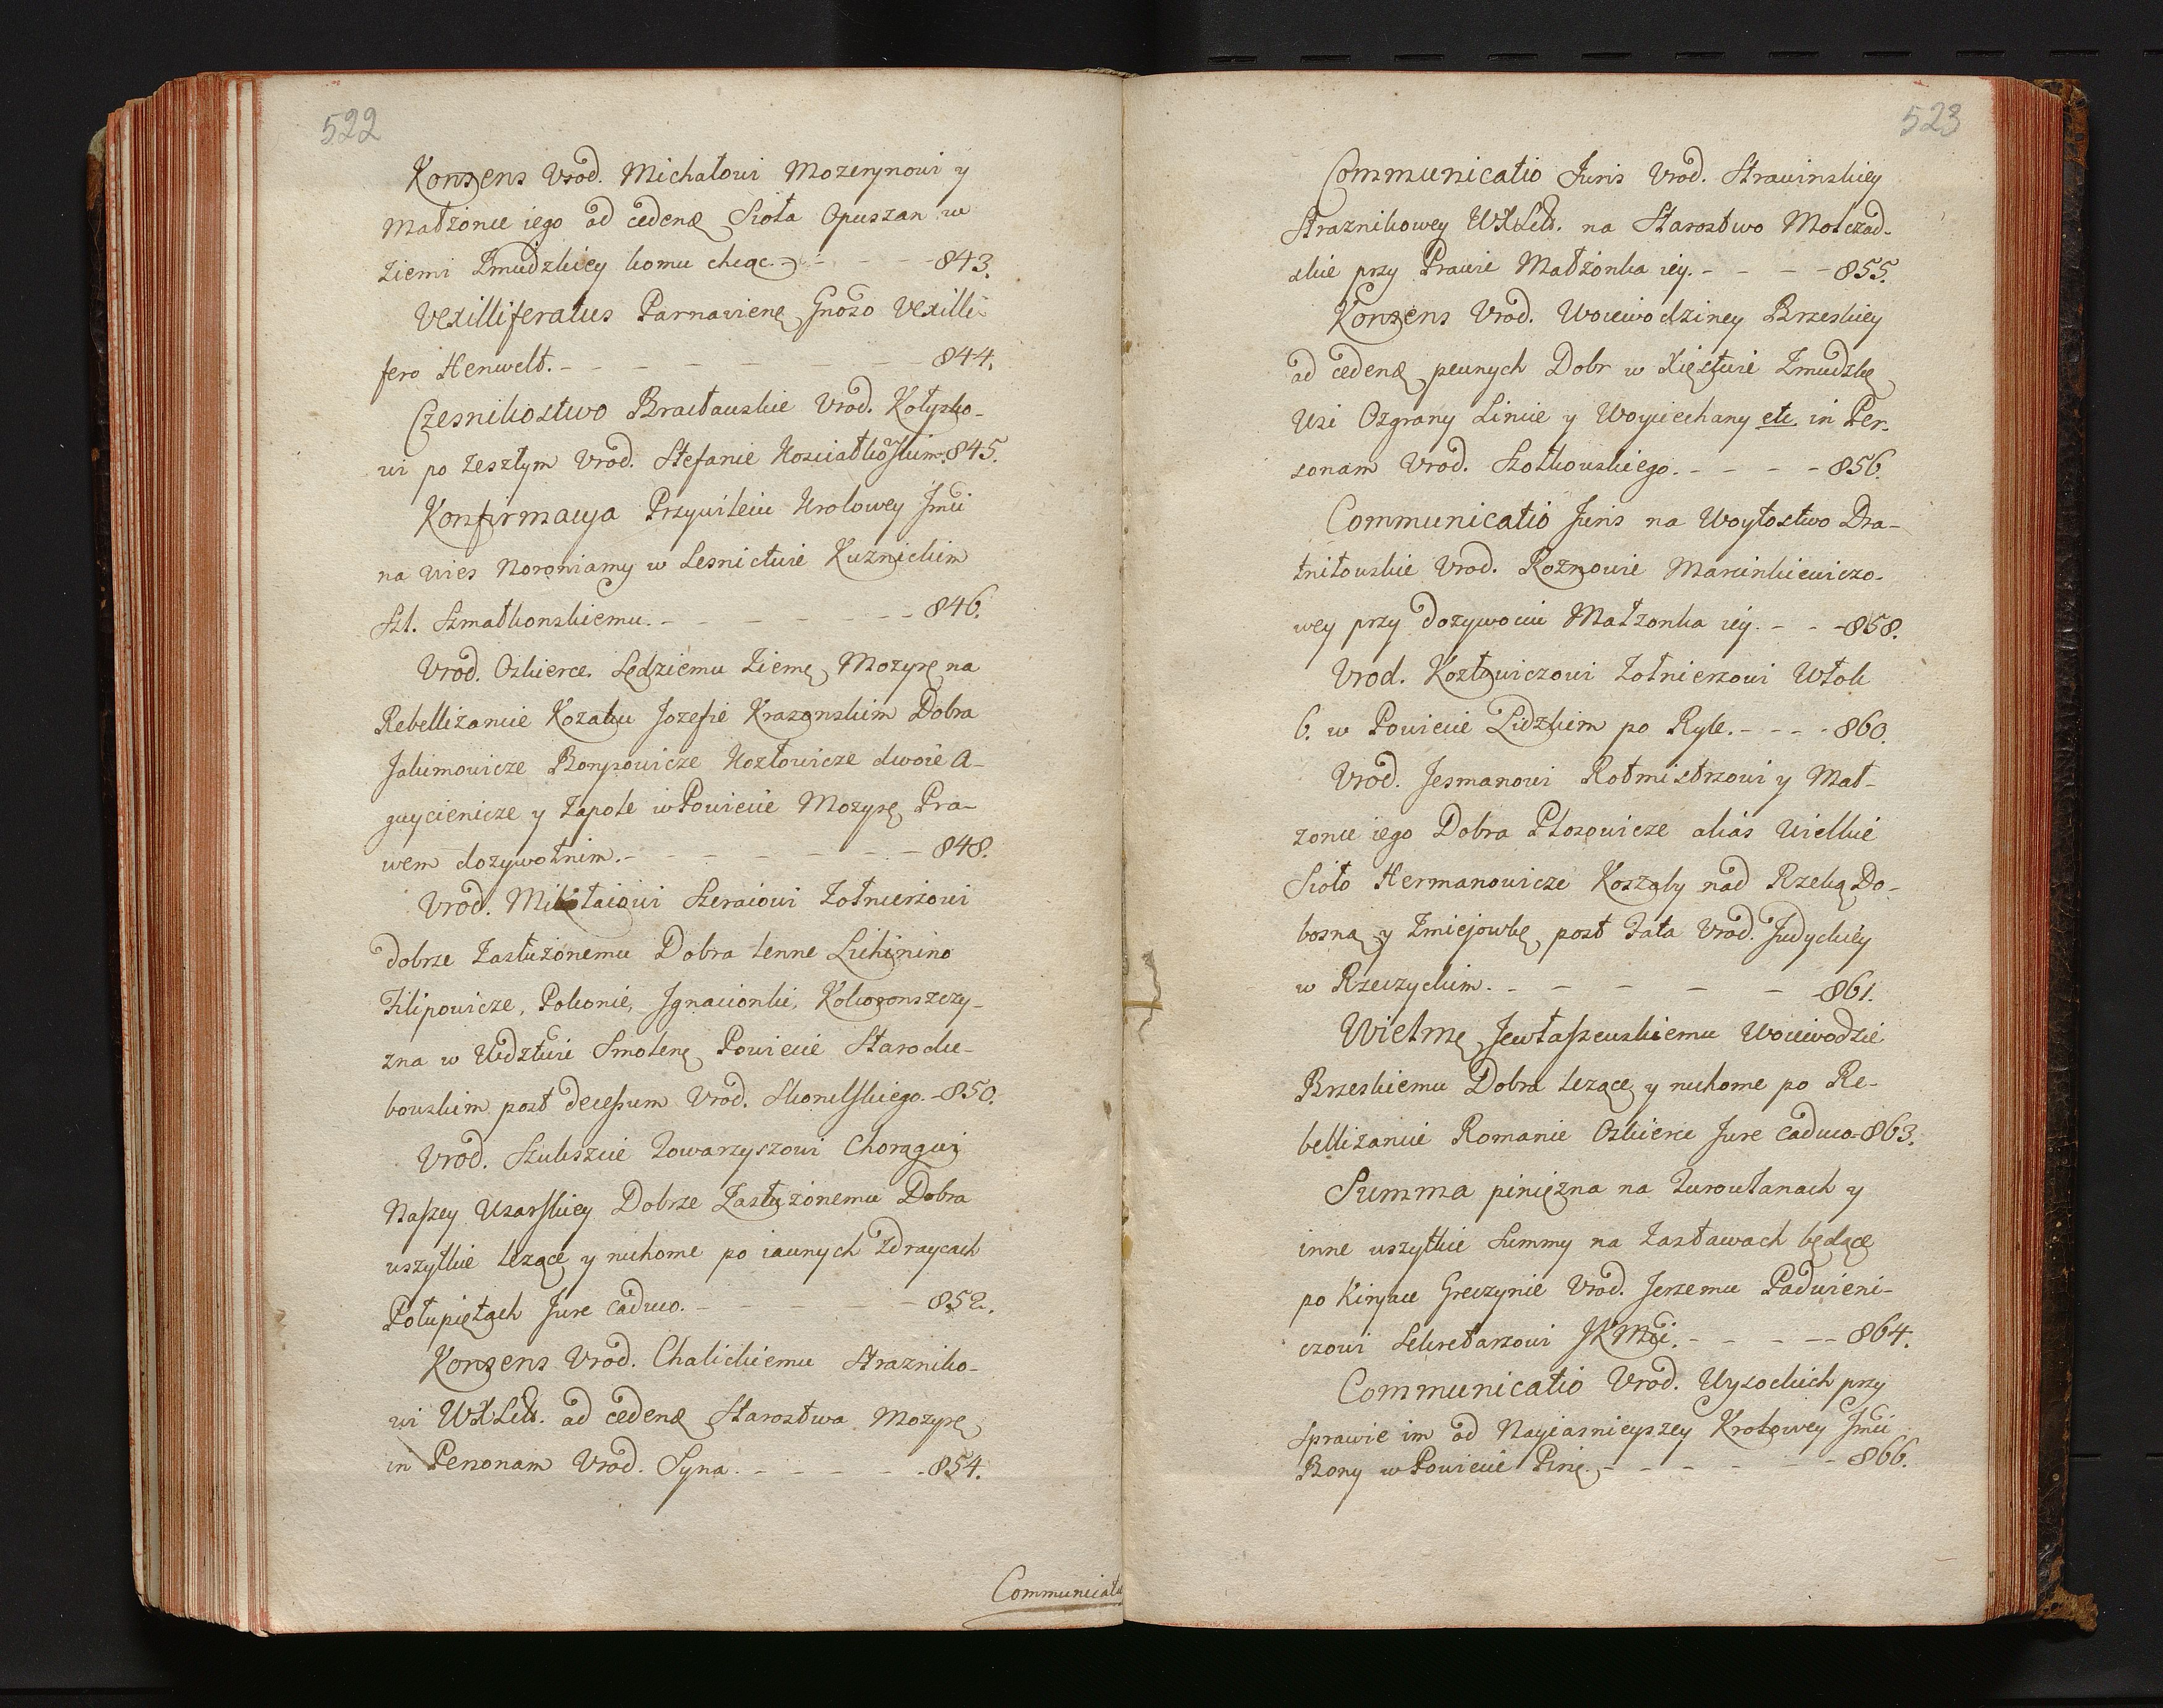 522
Konsens Urod. Michałowi Mozerynowi y
Małżonce iego ad cedend. Sioła Opuszan w
Ziemi Żmudzkiey komu chcąc. - - - 843.
Vexilliferatus Parnavien. Gnoso Vexilli-
fero Henwelt. - - - - - - 844.
Czesnikostwo Bracławskie Urod. Kołysko-
wi po zeszłym Urod. Stefanie Kosciałkoskim. 845.
Konfirmacya Przywileiu Krolowey Jmci
na wies Noroniamy w Lesnictwie Kuznickim
Szl. Szmatkonskiemu. - - - - - - 846.
Urod. Oskierce Sędziemu Ziem. Mozyr. na
Rebellizancie Kozaku Jozefie Krasonskim Dobra
Jakimowicze Borysowicze Kozłowicze dwoie A-
guycienicze y Zapole w Powiecie Mozyr. Pra-
wem dozywotnim. - - - - - - 848.
Urod. Mikołaiowi Szeraiowi Zołnierzowi
dobrze Zasłużonemu Dobra lenne Lichinino
Filipowicze, Pokonie, Jgnacionki, Kokoronszczy-
zna w Wdztwie Smolen. Powiecie Starodu-
bowskim post decessum Urod. Skonilskiego. - 850.
Urod. Szukszcie Towarzyszowi Chorągwi
Naszey Usarskiey Dobrze Zasłużonemu Dobra
wszytkie leząće y ruchome po iawnych Zdraycach
Połupiętach Jure caduco. - - - - 852.
Konsens Urod. Chalickiemu Strazniko-
wi WXLitt. ad cedend. Starostwa Mozyr.
in Personam Urod. Syna. - - - - - 854.
Communicatio
523
Communicatio Juris Urod. Strawinskiey
Straznikowey WXLitt. na Starostwo Mołczad-
skie przy Prawie Małżonka iey. - - - - 855.
Konsens Urod. Woiewodziney Brzeskiey
ad cedend. pewnych Dobr w Xięstwie Zmudzk.
Wsi Ozgrany Linie y Woyciechany etc. in Per-
sonam Urod. Szołkowskiego. - - - - 856.
Communicatio Juris na Woytostwo Dra-
tnitowskie Urod. Roznowie Marcinkiewiczo-
wey przy dozywociu Małzonka iey. - - - 858.
Urod. Kozłowiczowi Zołnierzowi Włok
6. w Powiecie Lidzkim po Ryle. - - - - 860.
Urod. Jesmanowi Rotmistrzowi y Mał-
zonce iego Dobra Płosowicze alias Wielkie
Sioło Hermanowicze Koszały nad Rzeką Do-
bosną y Zmiejowkę post Fata Urod. Judyckiey
w Rzeczyckim. - - - - - - 861.
Wielm. Jewłaszewskiemu Woiewodzie
Brzeskiemu Dobra lezące y ruchome po Re-
bellizancie Romanie Oskierce Jure caduco - 863.
Summa pinięzna na Zurowłanach y
inne wszytkie Summy na Zastawach będące
po Kiryace Greczynie Urod. Jerzemu Padwieni-
czowi Sekretarzowi JKMci. - - - - - 864.
Communicatio Urod. Wysockich przy
Sprawie im od Nayiasnieyszey Krolowey Jmci
Bony w Powiecie Pins. - - - - - - 866.